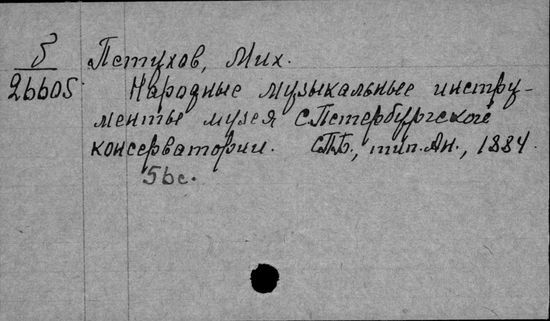 5 Петухов, Мих.
26605 Народные музыкальные инстру-
менты музея С.Петербургской
консерватории. СПБ., тип. Ан., 1884.
56с.